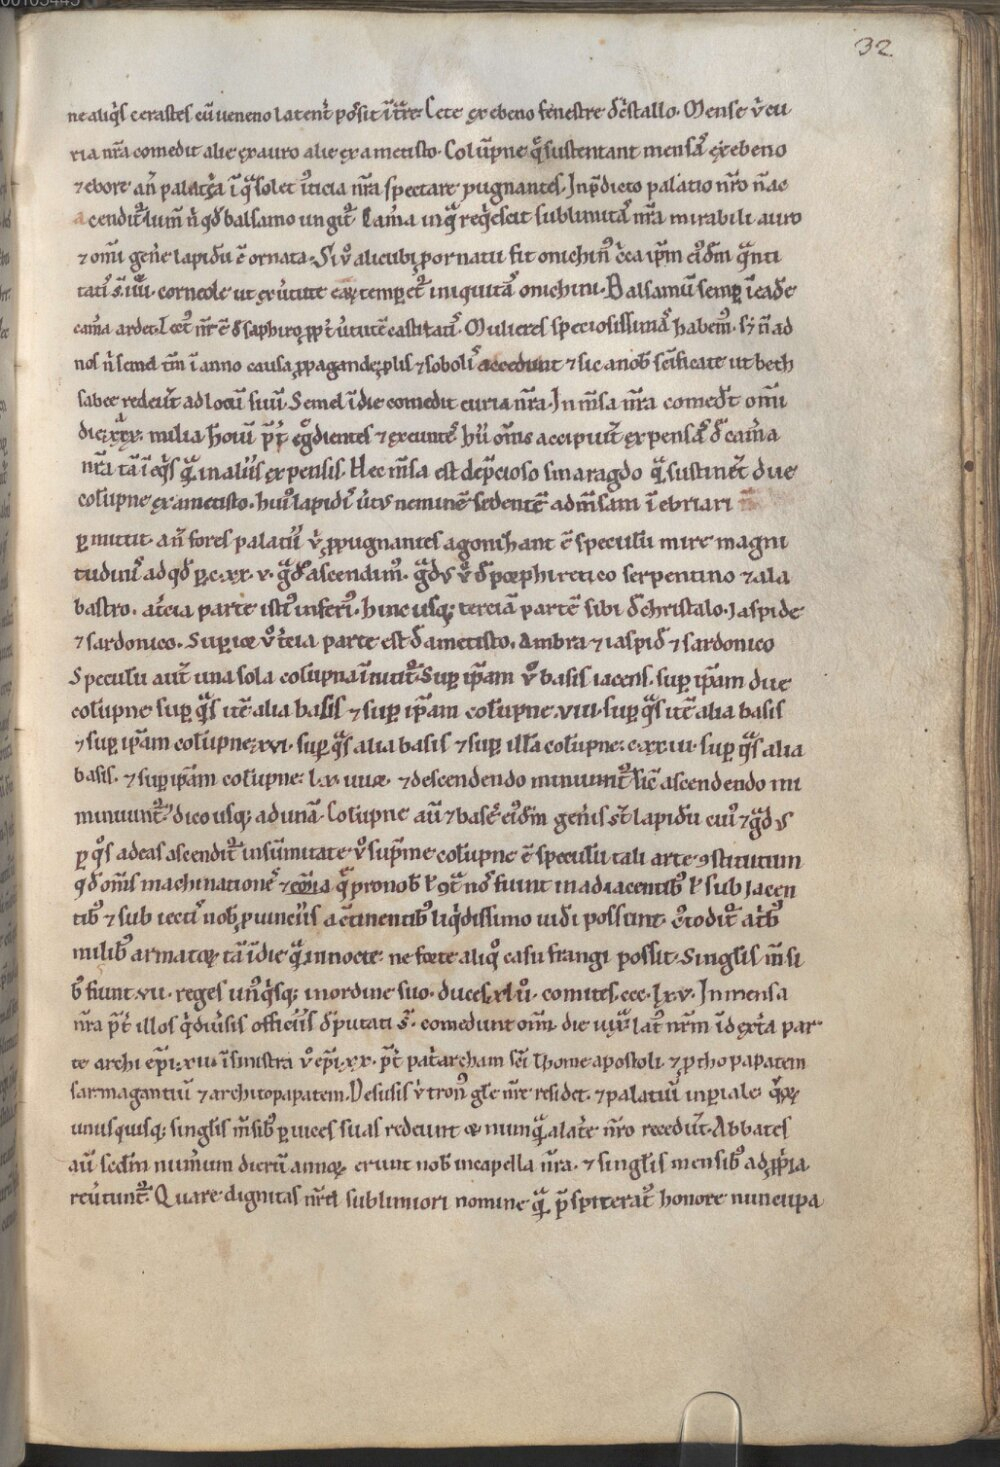 32
ne aliq̇s cerastes cū ueneno latent̾ possit ītrare. Cete ex ebeno fenestre d̾ c̾stallo. Mense v̾ cu
ria nr̄a comedit alie ex auro alie ex ametisto. Colūpne q̄ sustentant mensā ex ebeno
⁊ ebore. an̄ palac̄ia ī q̄ solet iusticia nr̄a spectare pugnantes. In p̄dicto palatio nr̄o n̄ ac
acendit̾ lum̄ n̄ qd̾ balsamo ungit̾. Cam̾a in q̄ req̇escit sublimitas nr̄a mirabili auro
⁊ om̄i gen̾e lapidū ē ornata. Si v̾ alicubi pro ornatu sit onichin᷒ c̾ca ip̄m ei᷒dm̄ q̄nti
tatis s̄ iiii. corneole ut ex u̾tute eaꝝ temp̱et̾ iniquitas onichini. Balsamū semp̱ ī eade
cam̾a ardet. Lect᷒ nr̄ ē d̾ saphiro ꝓpt̾ u̾tutē castitatis. Mulieres speciosissimas habem᷒. s; n̄ ad
nos n̄ semel tm̄ ī anno causa ꝓpagande ꝓlis ⁊ sobolis accedunt ⁊ sic a nob̄ sc̄ificate ut beth
sabee redeūt ad locū suū. Semel ī die comedit curia nr̄a. In m̄sa nr̄a comedūt om̄i
die xxx. milia hoīū p̄t̾ eg̾dientes ⁊ exeuntes. hii om̄s accipiūt expensas d̾ cam̾a
nr̄a tā ī eq̇s q̄ in aliis expensis. Hec m̄sa est d̾ p̄cioso smaragdo q̄ sustinent due
colūpne ex ametisto. hui᷒ lapidis u̾tus neminē sedentē ad m̄sam īebriari
p̱mittit. an̄ fores palatii v̾ pugnantes agonizant ē speculū mire magni
tudinis ad qd̾ p̱ c.xx.v. g̾d᷒ ascendim᷒. g̾dus v̾ d̾ porphiretico serpentino ⁊ ala
bastro. a t̾cia parte isti᷒ inferi᷒. hinc usq; terciā partē sibi d̾ christalo. Iaspide
⁊ sardonico. Superior v̾ t̾cia parte est d̾ ametisto. Ambra ⁊ iaspide ⁊ sardonico
Speculū aut̄ una sola colupna inititur. Sup̱ ip̄am v̾ basis iacens. sup̱ ip̄am due
colūpne sup̱ q̄s itē alia basis ⁊ sup̱ ip̄am colūpne. viii. sup̱ q̄s itē alia basis
⁊ sup̱ ip̄am colūpne. xvi. sup̱ q̄s alia basis ⁊ sup̱ illā colūpne. c.xxiii. sup̱ q̄s alia
basis. ⁊ sup̱ ip̄am colūpne. lx.iiiior. ⁊ descendendo minuunt̾ sic̄ ascendendo mi
minuunt̾ dico usq; ad unā. Colūpne aū ⁊ bases ei᷒dm̄ gen̾is st̄ lapidū cui᷒ ⁊ g̾dus
p̱ q̇s ad eas ascendit̾. in sūmitate v̾ sup̄me colūpne ē speculū tali arte ꝯstitutum
qd̾ om̄s machinationes ⁊ om̄ia q̄ pro nob̄ ł ꝯt̾ nos fiunt in adiacentib᷒ ł subiacen
tib᷒ ⁊ subiectis nob̄ ꝓuinciis a c̄tinentib᷒ liq̇dissimo uidi possunt. c᷒todit̾ at̄ b᷒
milib᷒ armatoꝝ tā ī die q̄ in nocte. ne forte aliq̊ casu frangi possit. Singlis m̄si
b᷒ fiunt. vii. reges un᷒q̇sq; in ordine suo. duces. xl.ii. comites. ccc.lx.v. In mensa
nr̄a p̄t̾ illos q̇ diu̾sis officiis d̾putati s̄. comedunt om̄i die iux̄ lat᷒ nr̄m ī dext̾a par
te archiep̄i. xii. ī sinistra v̾ ep̄i. xx. p̄t̾ pat̾archam sc̄i Thome apostoli ⁊ ꝓthopapatem
sarmagantiū ⁊ architopapatem. De susis v̾ tron᷒ gl̄e nr̄e residet. ⁊ palatiū inp̱iale. q̄ꝝ
unusquisq; singlis m̄sib᷒ p̱ uices suas redeunt ⁊ nunq̄ a lat̾e nr̄o recedūt. Abbates
aū sc̄dm num̾um dierū annoꝝ. erunt nob̄ in capella nr̄a. ⁊ singlis mensib᷒ ad ꝓp̾a
reu̾tunt̾. Quare dignitas nr̄a sublimiori nomine q̄ p̄spiterat᷒ honore nuncupa